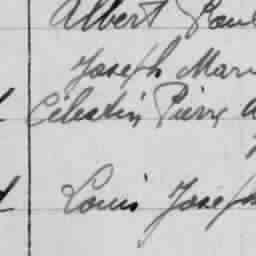 Albert Paul
Joseph Mar
Célestin Pierre
Louis Joseph